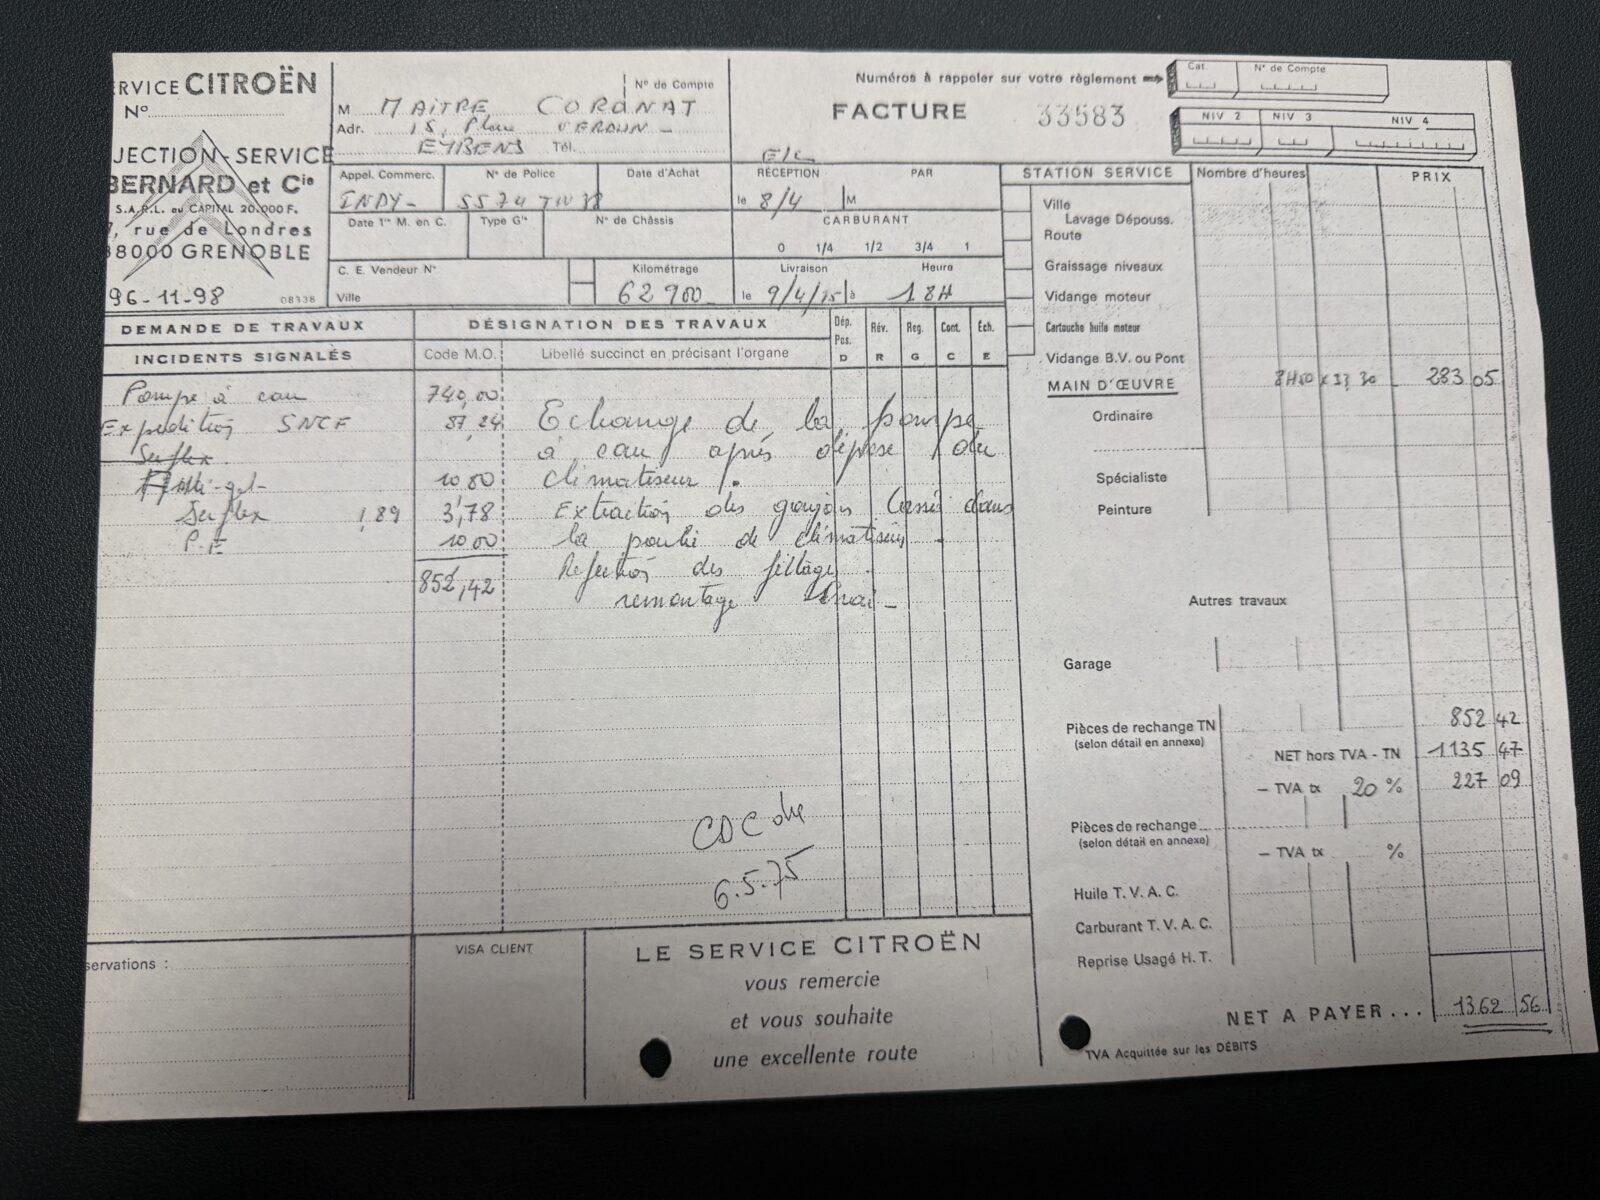 RVICE CITROËN
N°
JECTION-SERVICE
BERNARD et Cie
S.A.R.L. au CAPITAL 20.000 F.
7, rue de Londres
38000 GRENOBLE
96-11-98 08338
N° de Compte
M MAITRE CORONAT
Adr. 15, Place VERDUN -
EYBENS Tél.
Numéros à rappeler sur votre règlement
Cat. N° de Compte
FACTURE 33583
NIV 2 NIV 3 NIV 4
Appel. Commerc. N° de Police Date d'Achat
INDY- 5574 TW 38
Date 1re M. en C. Type Gie N° de Châssis
C. E. Vendeur N° Kilométrage
Ville 62 900
E/C
RÉCEPTION PAR
le 8/4 M
CARBURANT
0 1/4 1/2 3/4 1
Livraison Heure
le 9/4/75 à 18H
DEMANDE DE TRAVAUX DÉSIGNATION DES TRAVAUX
INCIDENTS SIGNALÉS Code M.O. Libellé succinct en précisant l'organe
Dép. Pos. D Rév. R Reg. G Cont. C Ech. E
Pompe à eau 740,00
Expedition SNCF 87,24
Serflex
Anti-gel- 10 80
Serflex 1,89 3,78
P.F 10 00
852,42
Echange de la pompe
à eau après dépose du
climatiseur.
Extraction des goujons cassé dans
la poulie de climatiseur -
Refection des filtages
remontage Essai -
CDC du
6.5.75
STATION SERVICE Nombre d'heures PRIX
Ville
Lavage Dépouss.
Route
Graissage niveaux
Vidange moteur
Cartouche huile moteur
Vidange B.V. ou Pont
MAIN D'ŒUVRE 8H50 x 33,30 283 05
Ordinaire
Spécialiste
Peinture
Autres travaux
Garage
Pièces de rechange TN 852 42
(selon détail en annexe)
NET hors TVA - TN 1135 47
— TVA tx 20 % 227 09
Pièces de rechange
(selon détail en annexe)
— TVA tx %
Huile T. V. A. C.
Carburant T. V. A. C.
Reprise Usagé H. T.
NET A PAYER... 1362 56
TVA Acquittée sur les DÉBITS
servations :
VISA CLIENT
LE SERVICE CITROËN
vous remercie
et vous souhaite
une excellente route